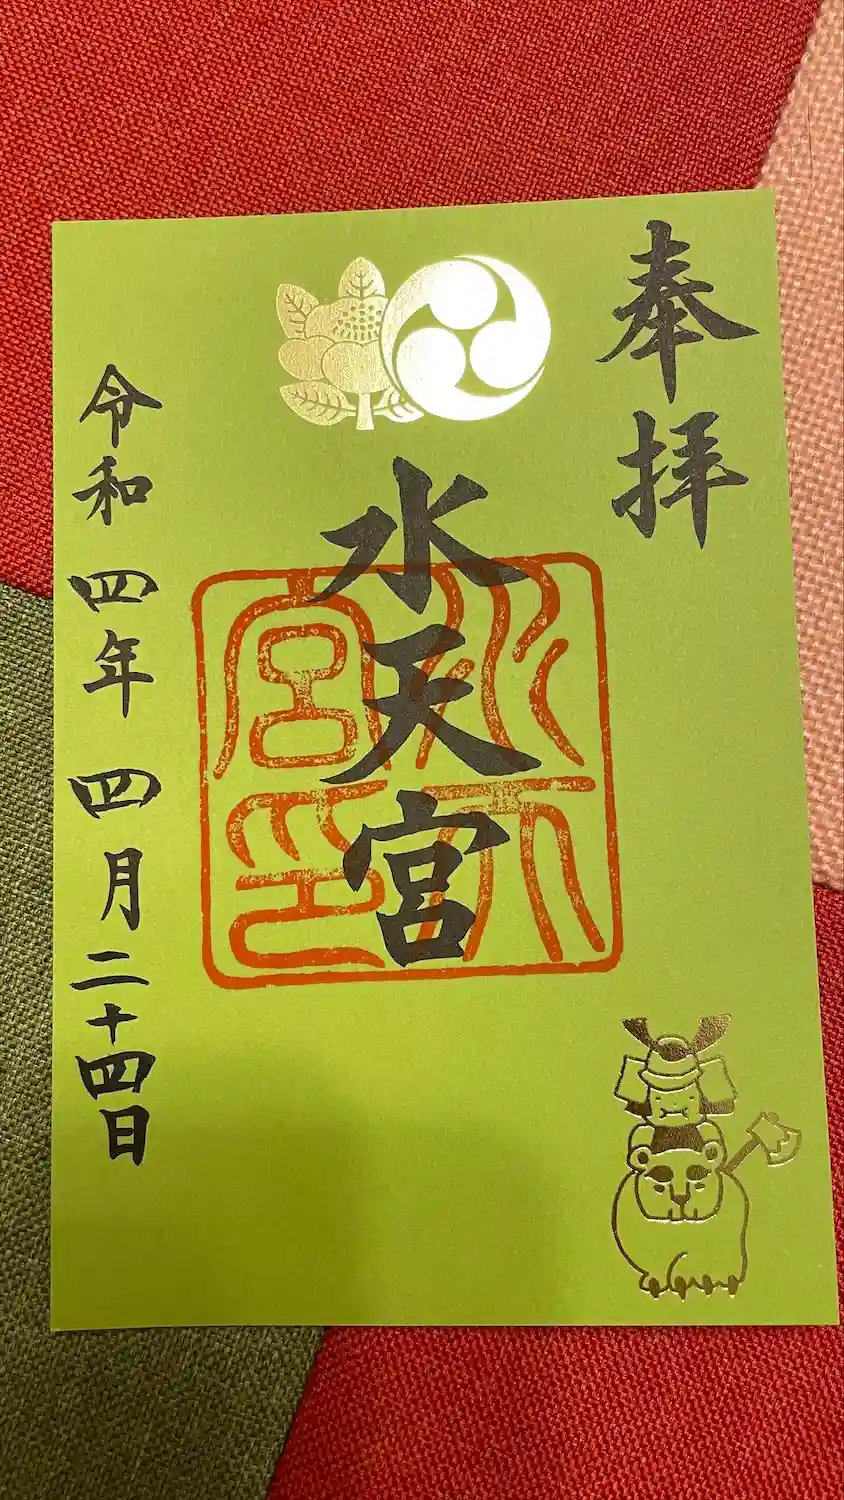 奉拝
水天宮
水天宮印
令和四年四月二十四日